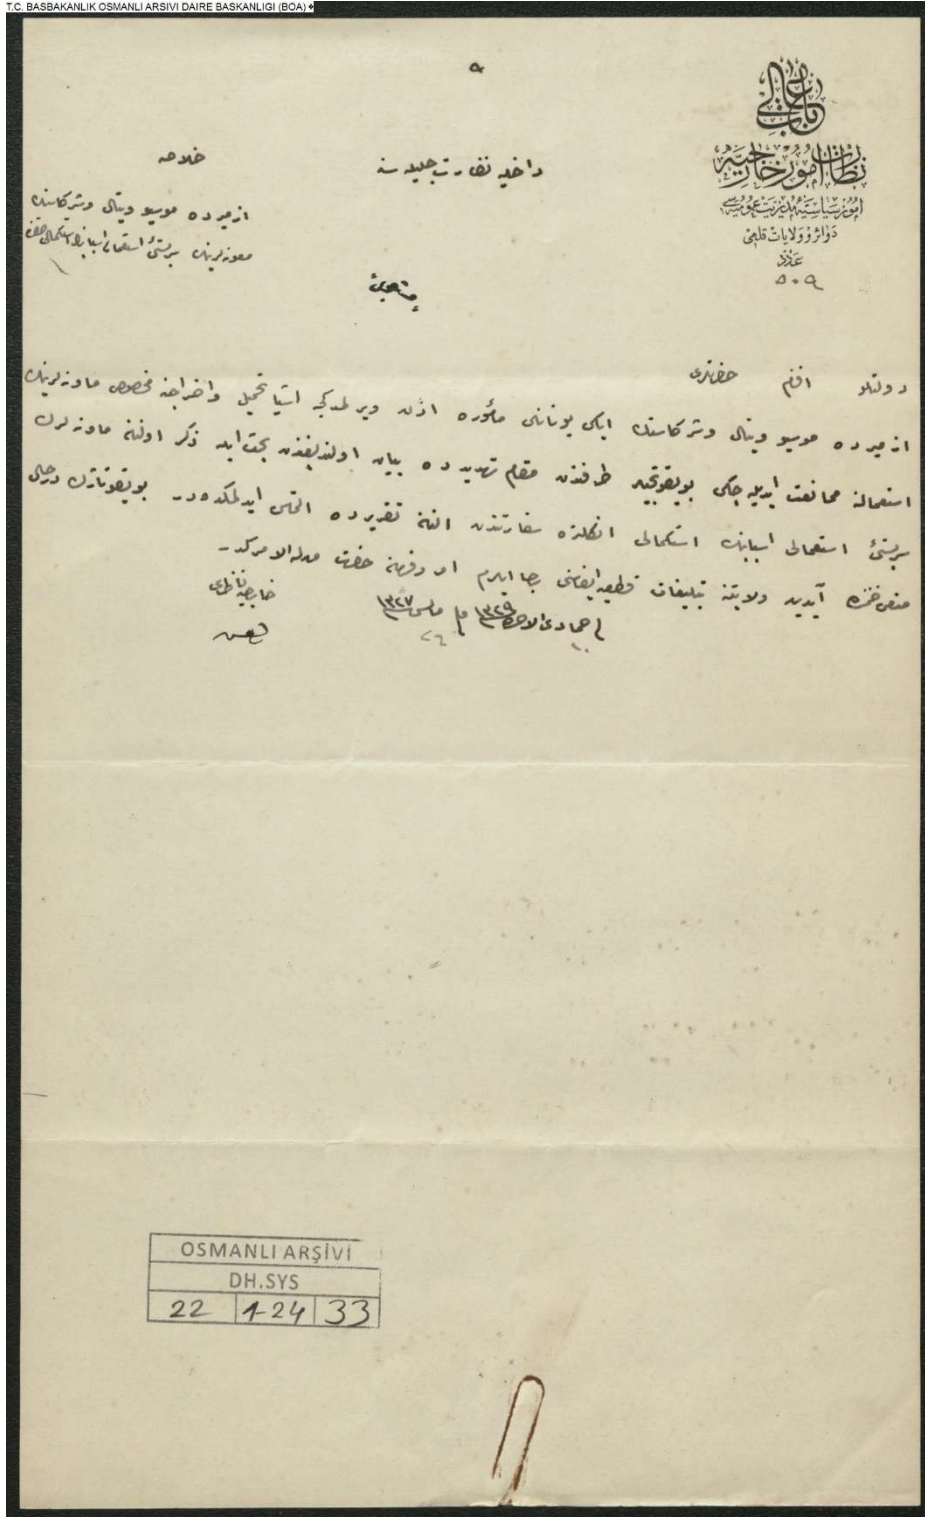 T.C. BASBAKANLIK OSMANLI ARSIVI DAIRE BASKANLIGI (BOA)
٩
باب عالی
نظارت امور خارجیه
امور سیاسیه مدیریت عمومیه سی
دوائر و ولایات قلمی
عدد
٥٠٩
داخلیه نظارت جلیله سنه
خلاصه
ازمیرده موسیو ویتال وشرکاسنك
ماونه لرینك سربستئ استعمالی اسبابنك استكمالی
دولتلو افندم حضرتلری
ازمیرده موسیو ویتال وشركاسنك ایكی یونانی مأموره اذن ویرلمدكجه اشیا تحمیل واخراجنه مخصوص ماونه لرینك
استعمالنه ممانعت ایدیله جكی بویقوتجیلر طرفندن مقام تهدیدده بیان اولندیغندن بحث ایله ذكر اولنان ماونه لرك
سربستئ استعمالی اسبابنك استكمالی انكلتره سفارتندن النان تقریرده التماس ایدلمكده در بویقوتاژك
آیدین ولایتنه تبلیغات قطعیه ایفاسنی رجا ایدرم اولبابده امر وفرمان حضرت من له الامركدر
فی ١٠ جمادی الاولی سنه ١٣٢٩ وفی ٢٦ مارس سنه ١٣٢٧
خارجیه ناظری
OSMANLI ARŞİVİ
DH.SYS
22 1-24 33